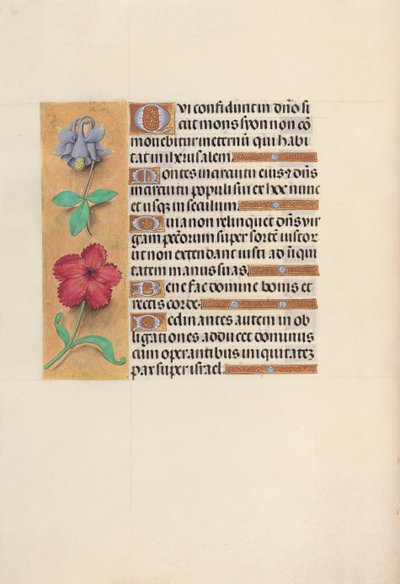 Qui confidunt in dño si
cut mons syon non cõ
mouebitur in eternũ qui habi
tat in iherusalem.
Montes in circuitu eius ⁊ dñs
in circuitu populi sui ex hoc nunc
et usq; in seculum.
Quia non relinquet dñs vir
gam peccatorum super sortẽ iustor
ut non extendant iusti ad iniqui
tatem manus suas.
Bene fac domine bonis et
rectis corde.
Declinantes autem in ob
ligationes adducet dominus
cum operantibus iniquitatẽ
pax super israel.